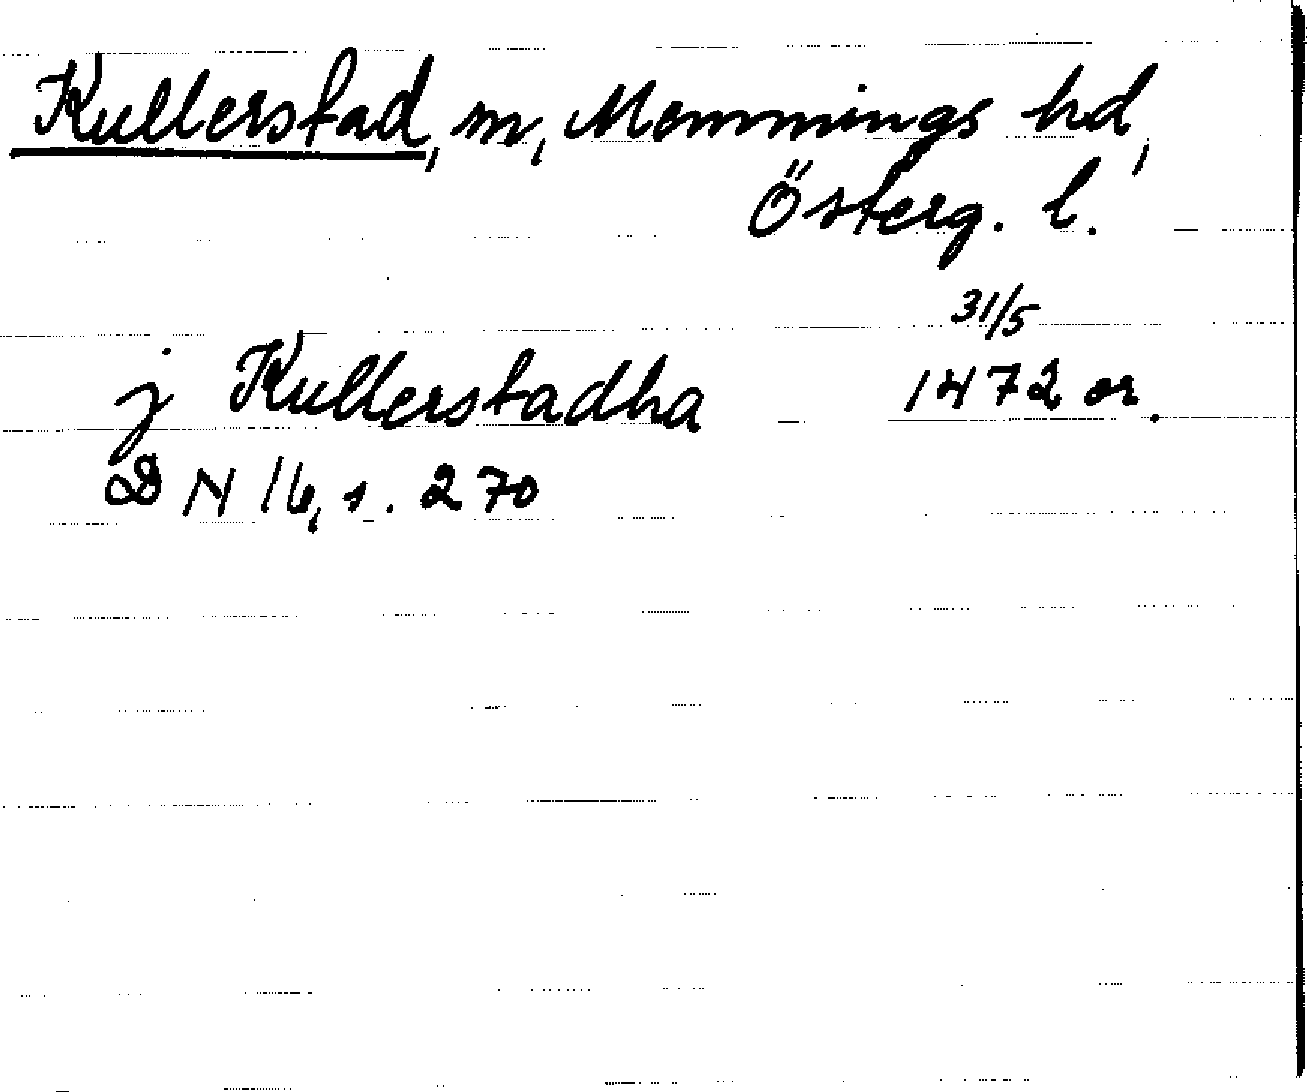 Kullerstad, sn, Memmings hd,
Österg. l.
31/5
j Kullerstadha 1472 or.
DN 16, s. 270